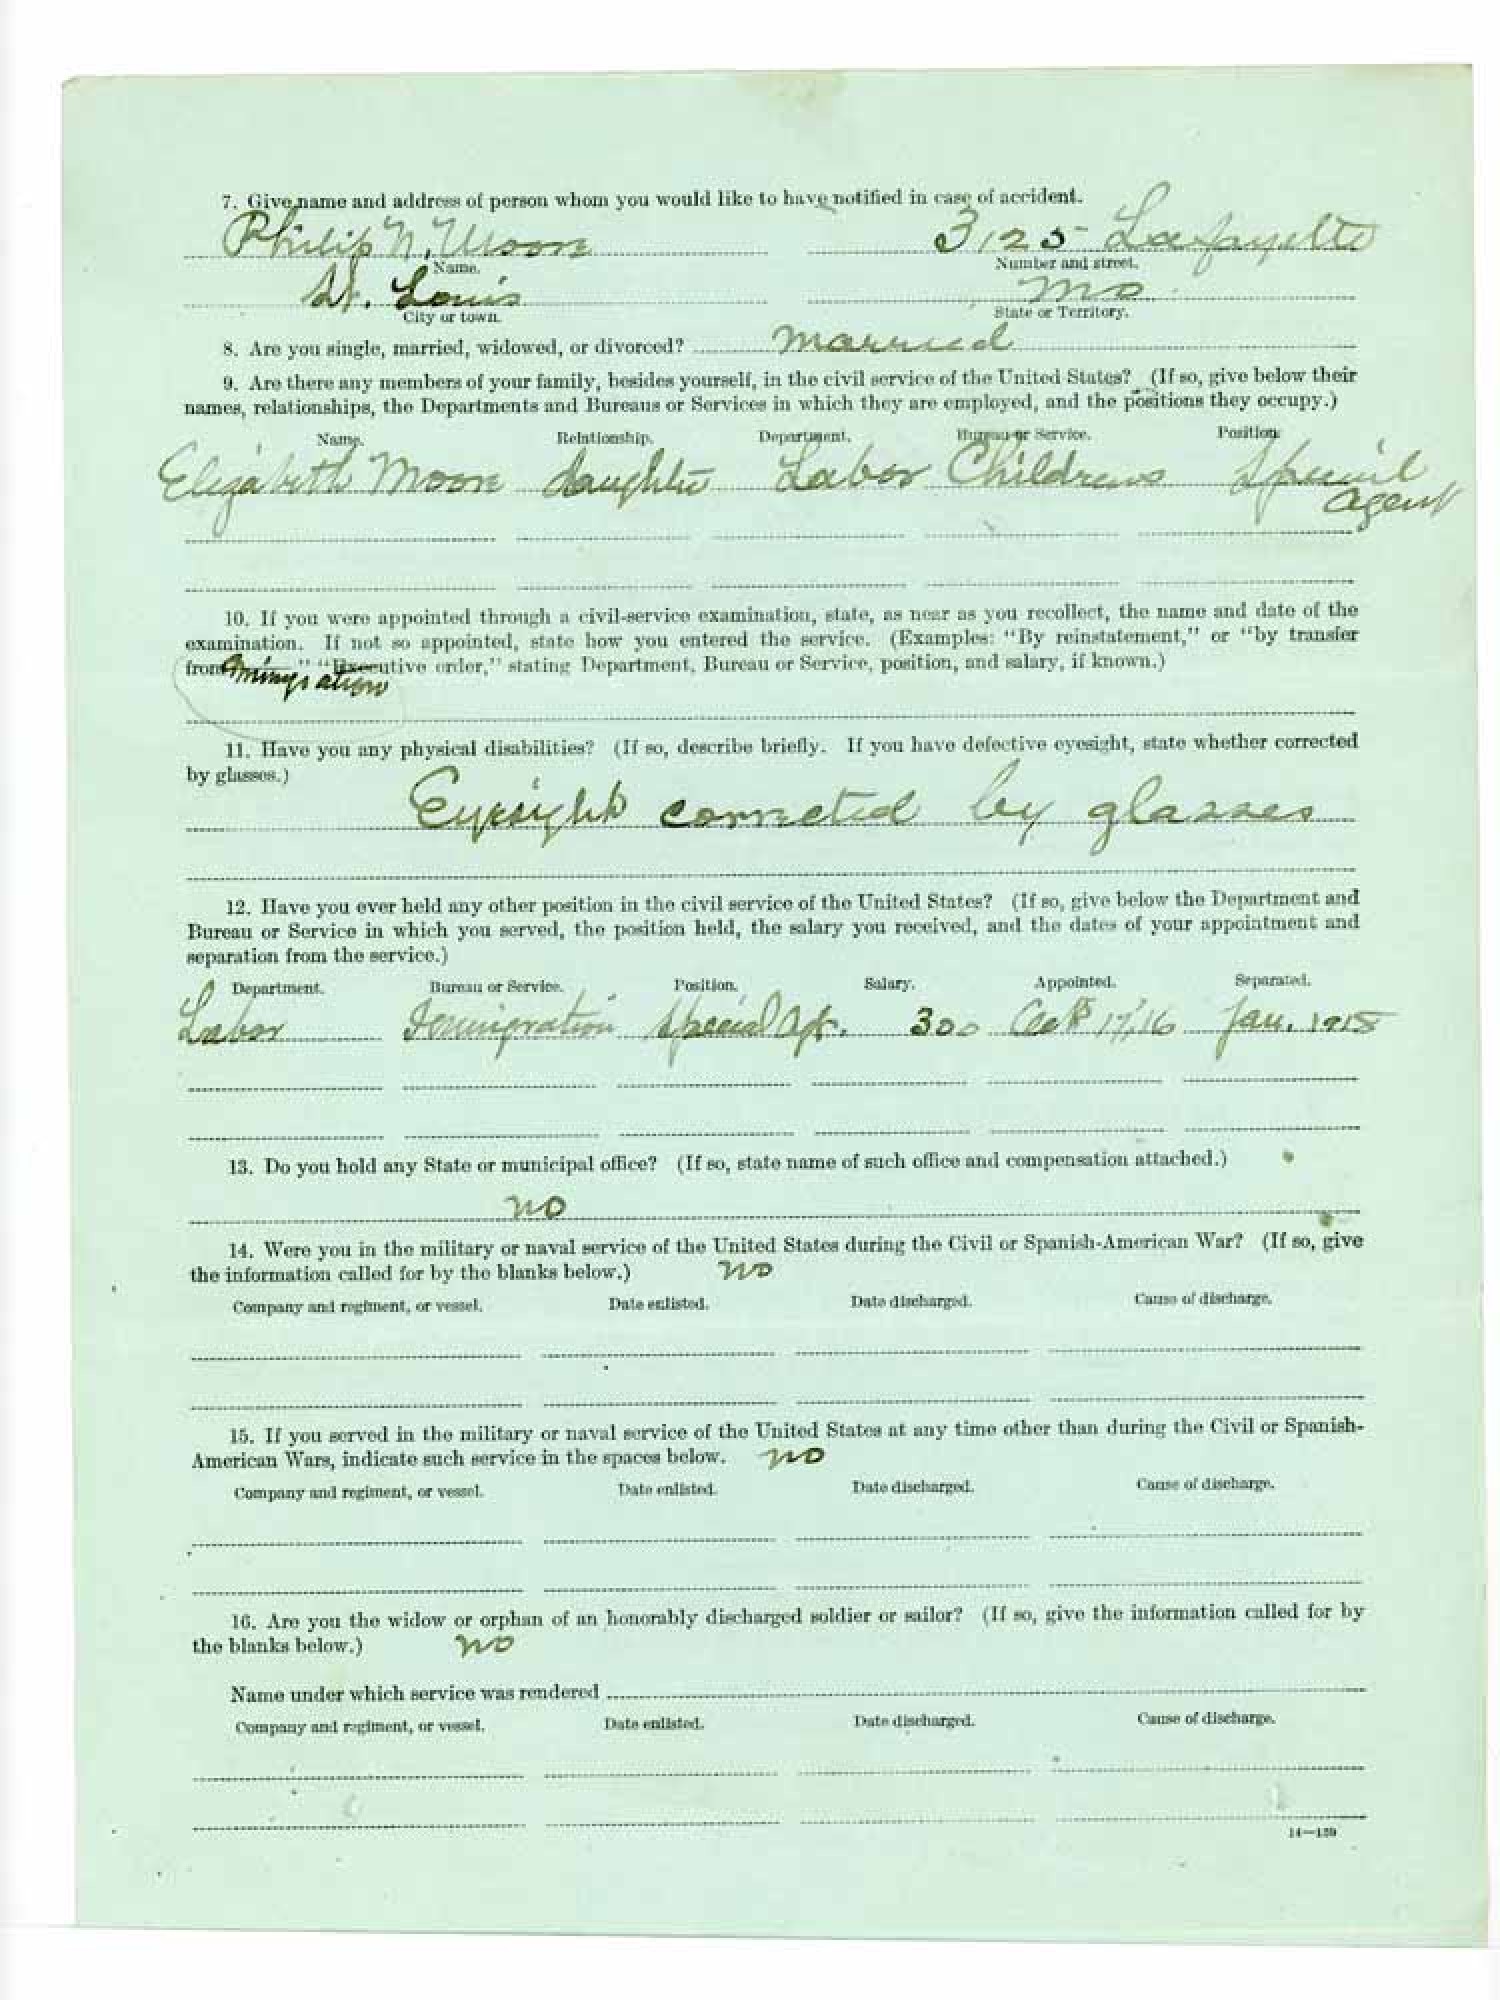 7. Give name and address of person whom you would like to have notified in case of accident.
Philip N. Moore 3125 Lafayette
Name. Number and street.
St. Louis Mo
City or town. State or Territory.
8. Are you single, married, widowed, or divorced? married
9. Are there any members of your family, besides yourself, in the civil service of the United States? (If so, give below their
names, relationships, the Departments and Bureaus or Services in which they are employed, and the positions they occupy.)
Name. Relationship. Department. Bureau or Service. Position.
Elizabeth Moore daughter Labor Childrens Special
agent
10. If you were appointed through a civil-service examination, state, as near as you recollect, the name and date of the
examination. If not so appointed, state how you entered the service. (Examples: "By reinstatement," or "by transfer
from ," "Executive order," stating Department, Bureau or Service, position, and salary, if known.)
11. Have you any physical disabilities? (If so, describe briefly. If you have defective eyesight, state whether corrected
by glasses.)
Eyesight corrected by glasses
12. Have you ever held any other position in the civil service of the United States? (If so, give below the Department and
Bureau or Service in which you served, the position held, the salary you received, and the dates of your appointment and
separation from the service.)
Department. Bureau or Service. Position. Salary. Appointed. Separated.
Labor Immigration Special Agt. 300 17,'16 Jan. 1918
13. Do you hold any State or municipal office? (If so, state name of such office and compensation attached.)
no
14. Were you in the military or naval service of the United States during the Civil or Spanish-American War? (If so, give
the information called for by the blanks below.) no
Company and regiment, or vessel. Date enlisted. Date discharged. Cause of discharge.
15. If you served in the military or naval service of the United States at any time other than during the Civil or Spanish-
American Wars, indicate such service in the spaces below. no
Company and regiment, or vessel. Date enlisted. Date discharged. Cause of discharge.
16. Are you the widow or orphan of an honorably discharged soldier or sailor? (If so, give the information called for by
the blanks below.) no
Name under which service was rendered
Company and regiment, or vessel. Date enlisted. Date discharged. Cause of discharge.
14—159